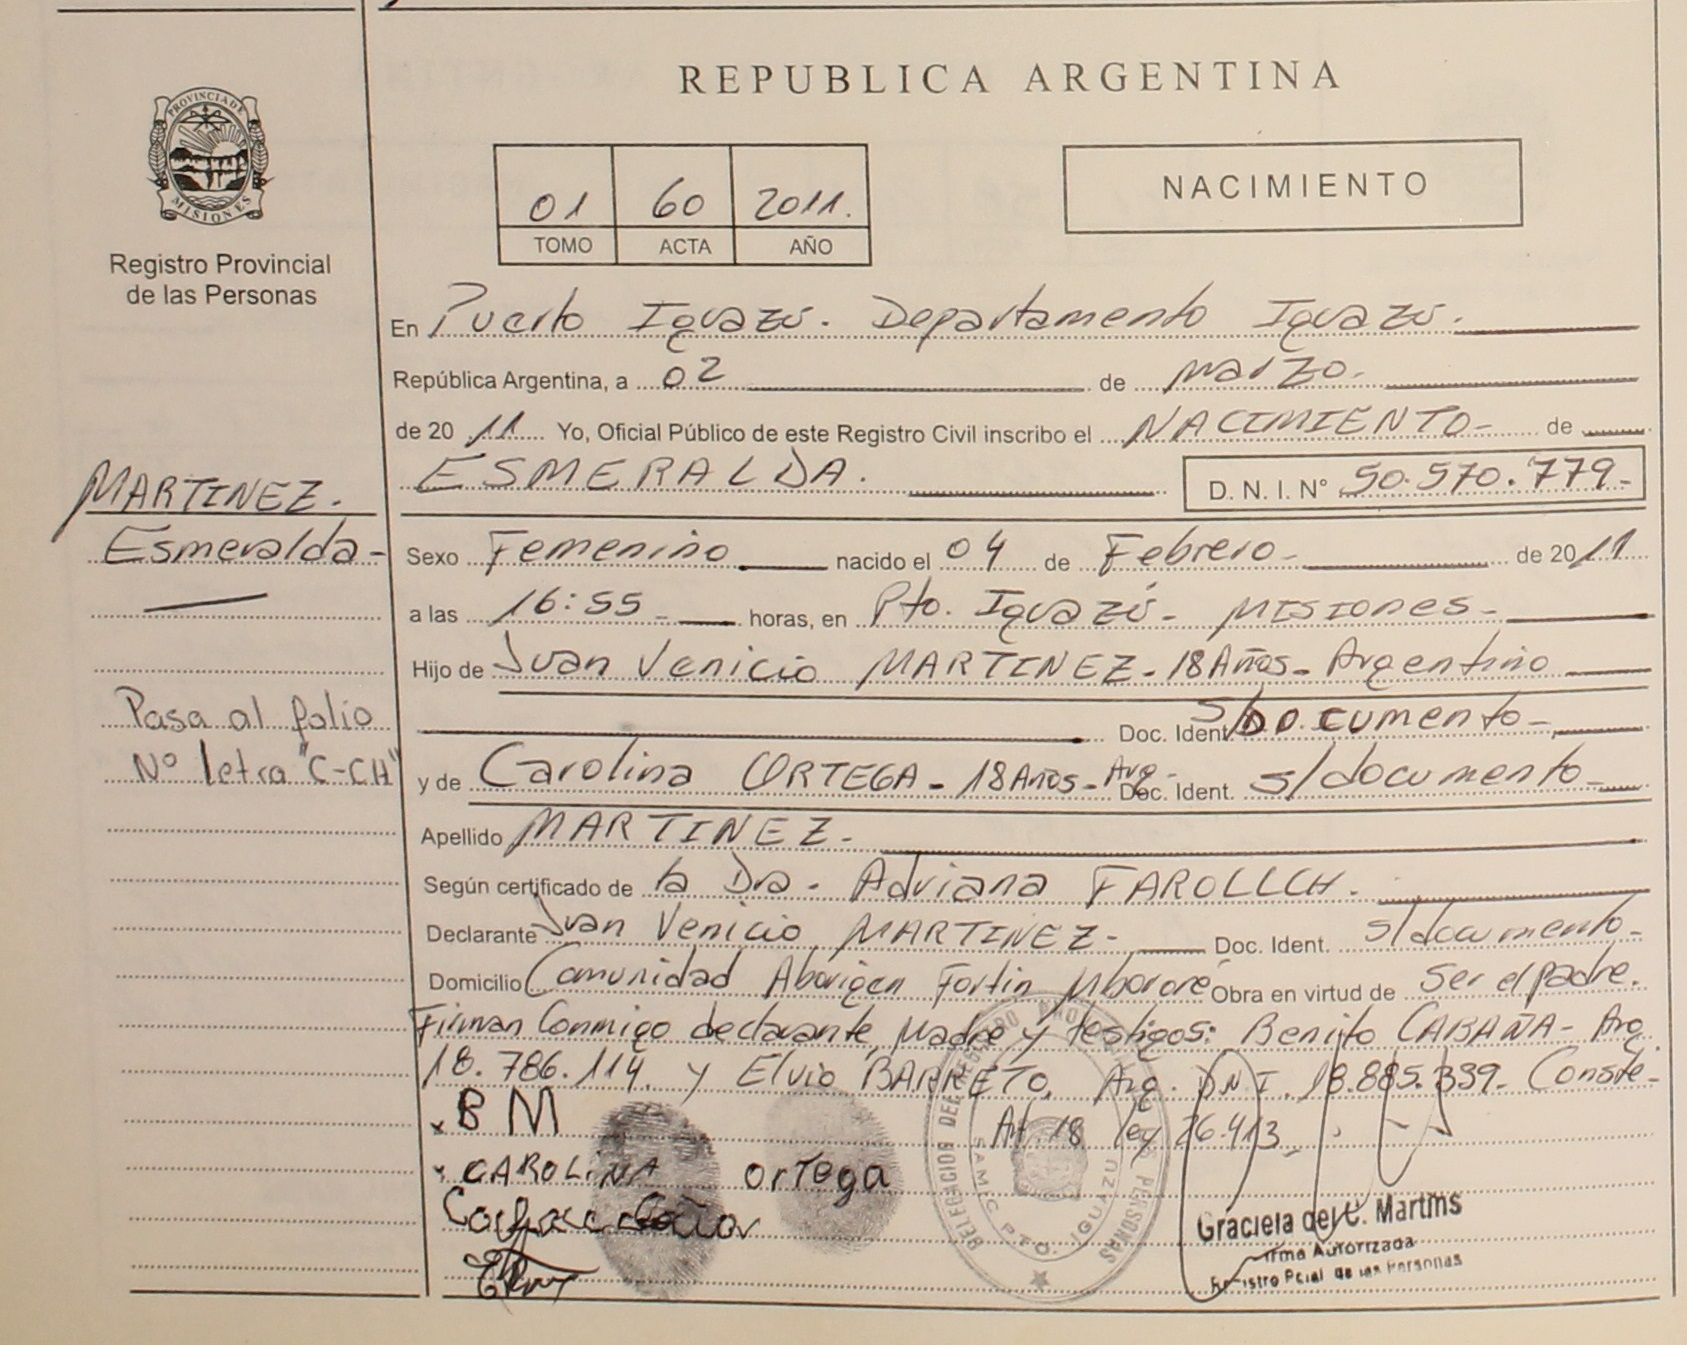 REPUBLICA ARGENTINA
PROVINCIA DE
MISIONES
Registro Provincial
de las Personas
01 60 2011.
TOMO ACTA AÑO
NACIMIENTO
En Puerto Iguazú. Departamento Iguazú.
República Argentina, a 02 de marzo.
de 20 11 Yo, Oficial Público de este Registro Civil inscribo el NACIMIENTO- de
ESMERALDA. D. N. I. N° 50.570.779-
MARTINEZ.
Esmeralda-
Sexo Femenino nacido el 04 de Febrero- de 20 11
a las 16:55- horas, en Pto. Iguazú- MISIONES-
Hijo de Juan Venicio MARTINEZ- 18 Años- Argentino
Doc. Ident. S/Documento-
Pasa al folio
N° letra "C-CH"
y de Carolina ORTEGA- 18 Años- Arg- Doc. Ident. s/documento-
Apellido MARTINEZ-
Según certificado de la Dra. Adriana FAROLLCH.
Declarante Juan Venicio MARTINEZ- Doc. Ident. s/documento-
Domicilio Comunidad Aborigen Fortin Mbororé Obra en virtud de Ser el padre.
Firman Conmigo declarante, Madre y testigos: Benito CABAÑA- Arg
18.786.114. y Elvio BARRETO. Arg. DNI. 18.885.339- Conste-
Art. 18 ley 26.413
x BM
x CAROLiNA ortega
DELEGACION DEL REGISTRO PERSONAS
SAMIC PTO. IGUAZU
Graciela del C. Martins
Firma Autorizada
Registro Pcial de las Personas